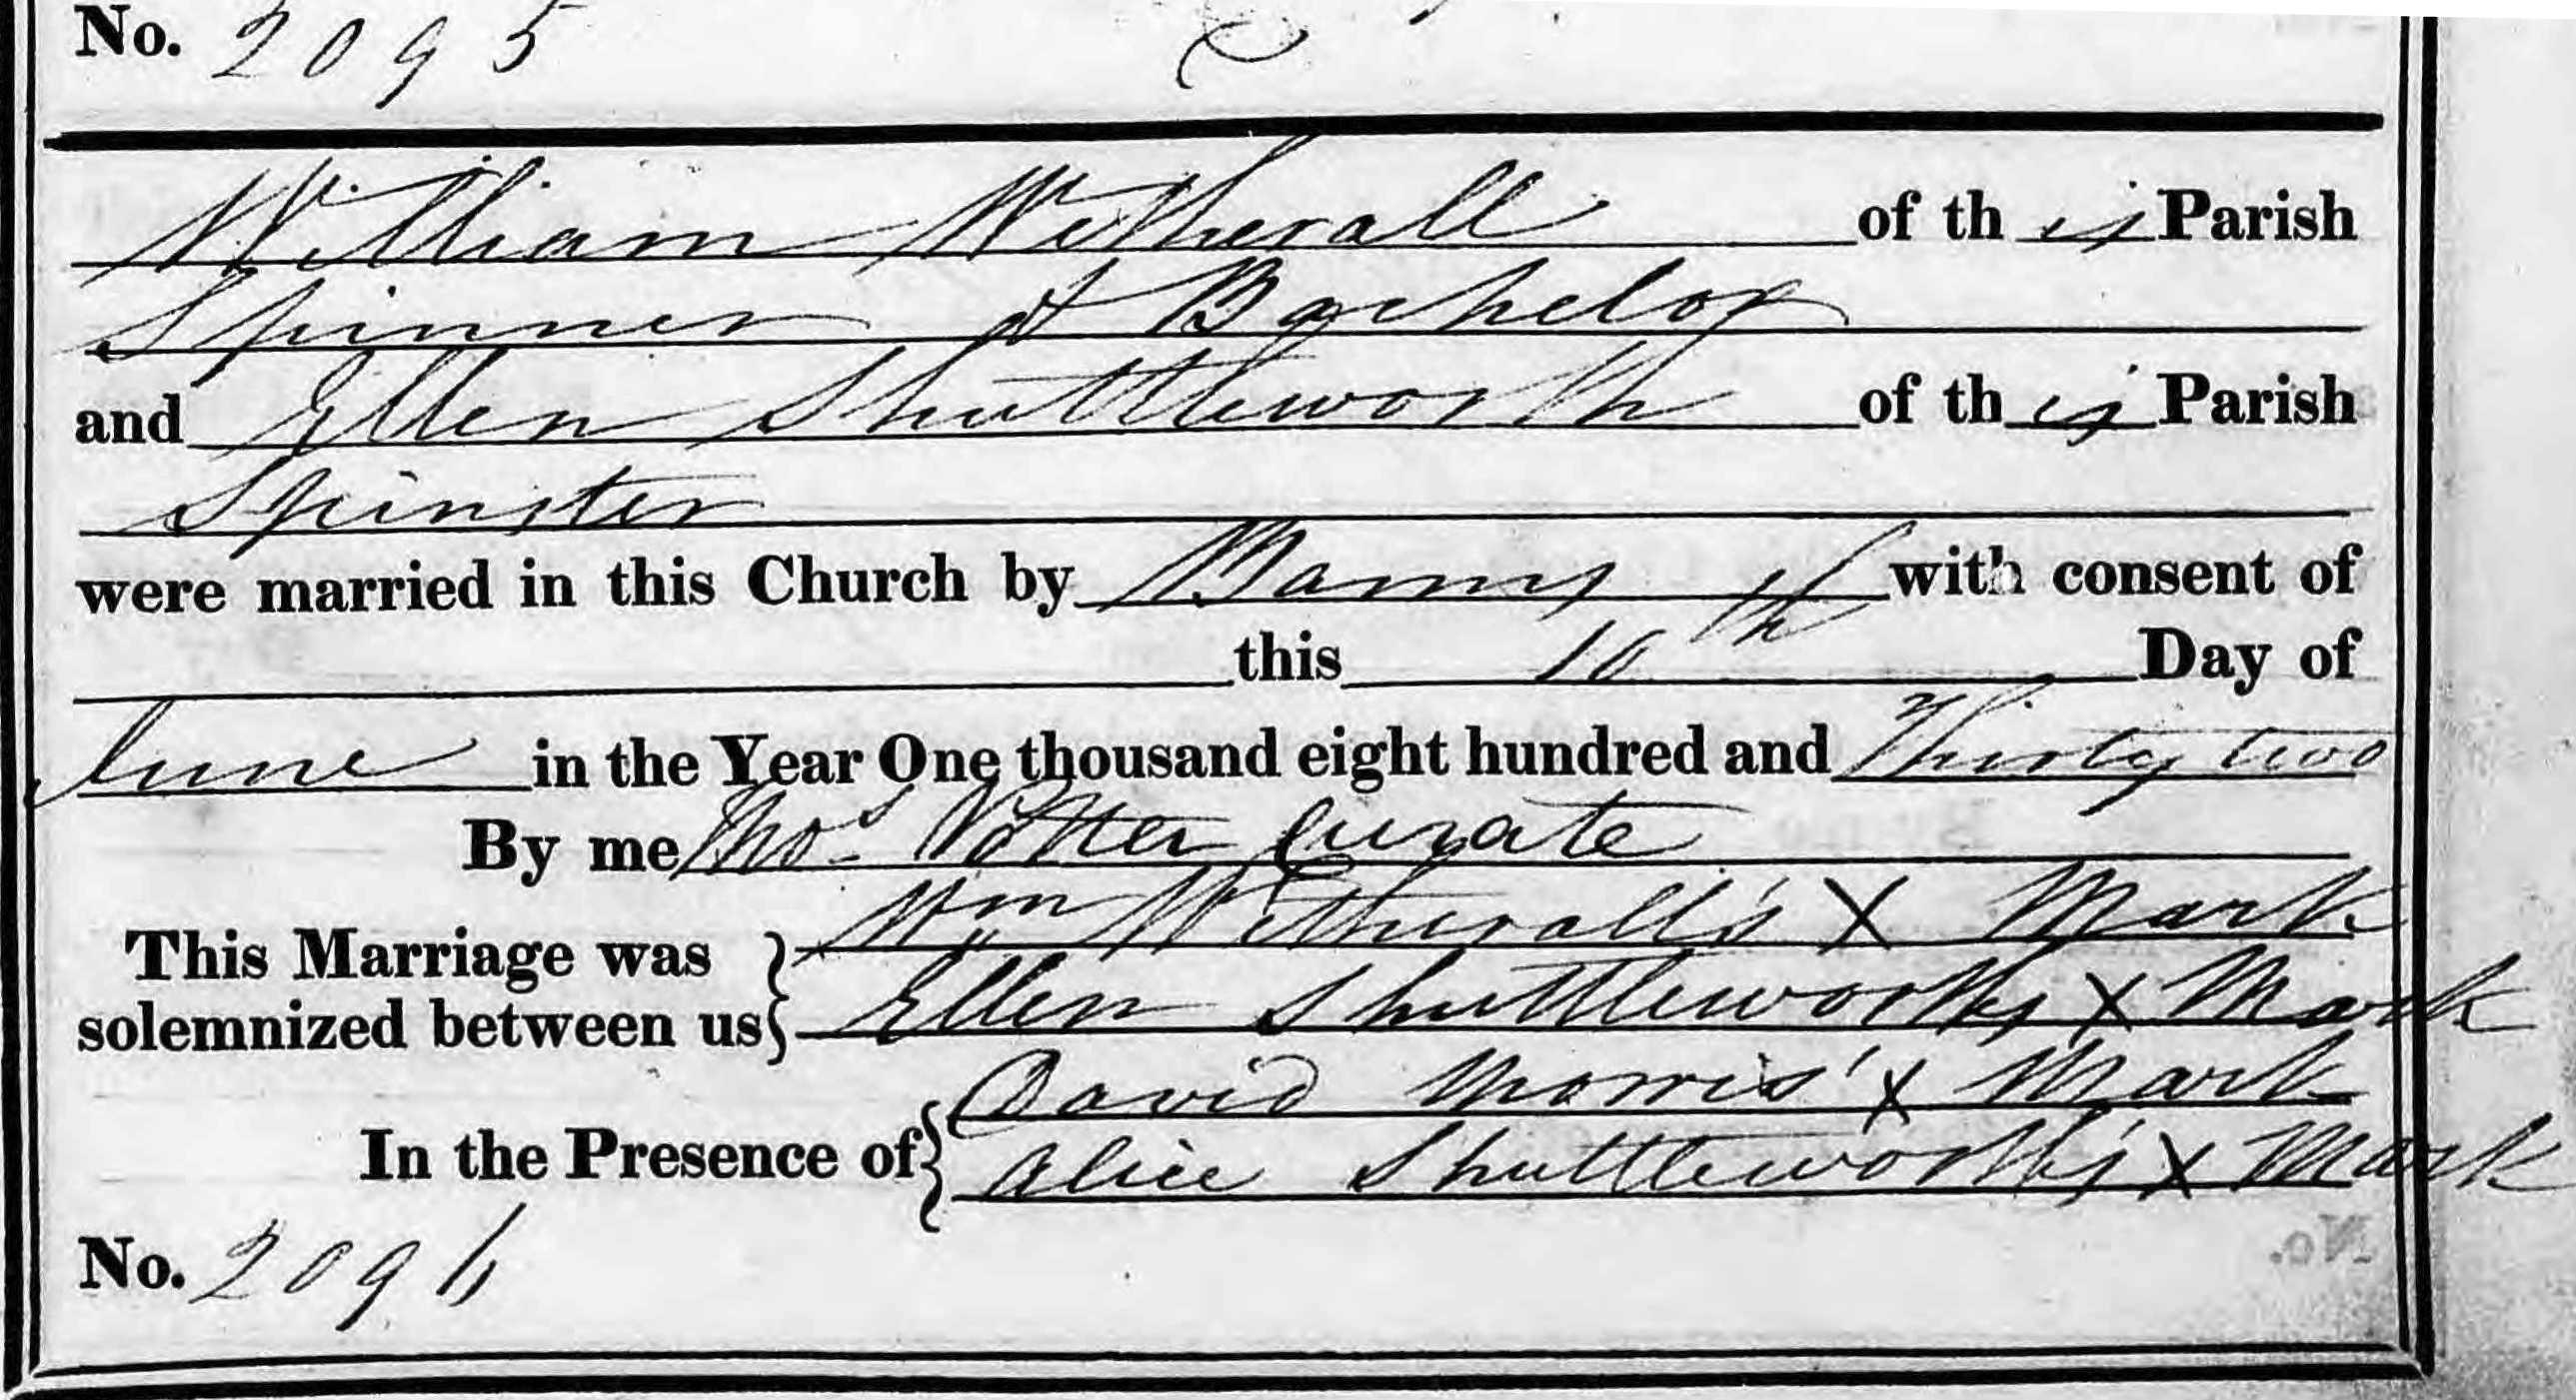 No. 2095
William Witherall of this Parish
Spinner & Bachelor
and Ellen Shuttleworth of this Parish
Spinster
were married in this Church by Banns with consent of
this 10th Day of
June in the Year One thousand eight hundred and Thirty two
By me Thos Potter Curate
This Marriage was solemnized between us
Wm Witherall's X Mark
Ellen Shuttleworth's X Mark
In the Presence of
David Morris' X Mark
Alice Shuttleworth's X Mark
No. 2096